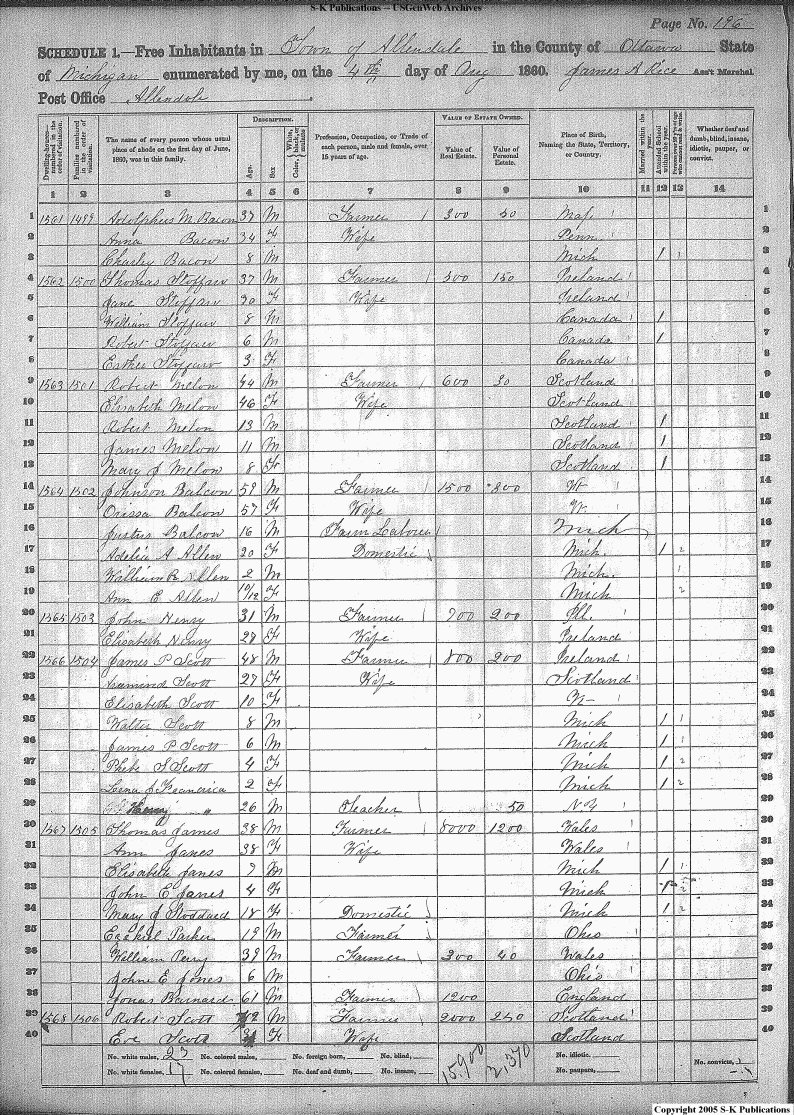 S-K Publications -- USGenWeb Archives
Page No. 196
SCHEDULE 1.—Free Inhabitants in Town of Allendale in the County of Ottawa State
of Michigan enumerated by me, on the 4th day of Aug 1860. James A Rice Ass't Marshal
Post Office Allendale
Dwelling-houses—numbered in the order of visitation.
Families numbered in the order of visitation.
The name of every person whose usual place of abode on the first day of June, 1860, was in this family.
DESCRIPTION.
Age.
Sex
Color, White, black, or mulatto
Profession, Occupation, or Trade of each person, male and female, over 15 years of age.
VALUE OF ESTATE OWNED.
Value of Real Estate.
Value of Personal Estate.
Place of Birth, Naming the State, Territory, or Country.
Married within the year.
Attended School within the year.
Whether deaf and dumb, blind, insane, idiotic, pauper, or convict.
1 2 3 4 5 6 7 8 9 10 11 12 13 14
1 1499 Adolpheus M. Bacon 37 M Farmer 300 Mass 1
2 Anna Bacon 34 F Wife Penn 2
3 Charley Bacon 8 M Mich 1 3
4 1562 1500 Thomas 37 M Farmer 150 Ireland 4
5 Jane F Wife Ireland 5
6 William 8 M Canada 1 6
7 Robert 6 M Canada 1 7
8 Esther 3 F Canada 8
9 1563 1501 Robert Melon 44 M Farmer 600 30 Scotland 9
10 Elisabeth Melon 46 F Wife Scotland 10
11 Robert Melon 13 M Scotland 1 11
12 James Melon 11 M Scotland 1 12
13 Mary J Melon 8 F Scotland 1 13
14 1564 1502 Johnson Balcon 59 M Farmer 1500 800 Vt 14
15 Orissa Balcon 57 F Wife Vt 15
16 Justus Balcon 16 M Farm Laborer Mich 16
17 Adelia A Allen 20 F Domestic Mich. 1 2 17
18 William R Allen 2 M Mich. 18
19 Ann E Allen 10/12 F Mich 2 19
20 1565 1503 John Henry 31 M Farmer 700 200 Ill. 20
21 Elisabeth Henry 28 F Wife Ireland 21
22 1566 1504 James P Scott 48 M Farmer 800 200 Ireland 22
23 Scott 27 F Wife Scotland 23
24 Elisabeth Scott 10 F Vt 24
25 Walter Scott 8 M Mich 1 1 25
26 James P Scott 6 M Mich 1 1 26
27 Phebe S Scott 4 F Mich 1 2 27
28 Lena J 2 F Mich 1 2 28
29 " 26 M Teacher 50 N.Y 29
30 1567 1505 Thomas James 38 M Farmer 8000 1200 Wales 30
31 Ann Janes 38 F Wife Wales 31
32 Elisabeth Janes 7 Mich 1 1 32
33 John E Janes 4 Mich 2 33
34 Mary J Stoddard 18 F Domestic Mich 1 2 34
35 Ezekiel Parker 19 M Farmer Ohio 35
36 William Perry 39 M Farmer 300 40 Wales 36
37 John E Jones 6 M Ohio 37
38 Jonas Barnard 61 M Farmer 1200 England 38
39 1568 1506 Robert Scott M Farmer 2000 240 Scotland 39
40 Eve Scott F Wife Scotland 40
No. white males, 23 No. colored males, No. foreign born, No. blind, 15,900 2,370 No. idiotic,
No. white females, 17 No. colored females, No. deaf and dumb, No. insane, No. paupers, No. convicts,
Copyright 2005 S-K Publications